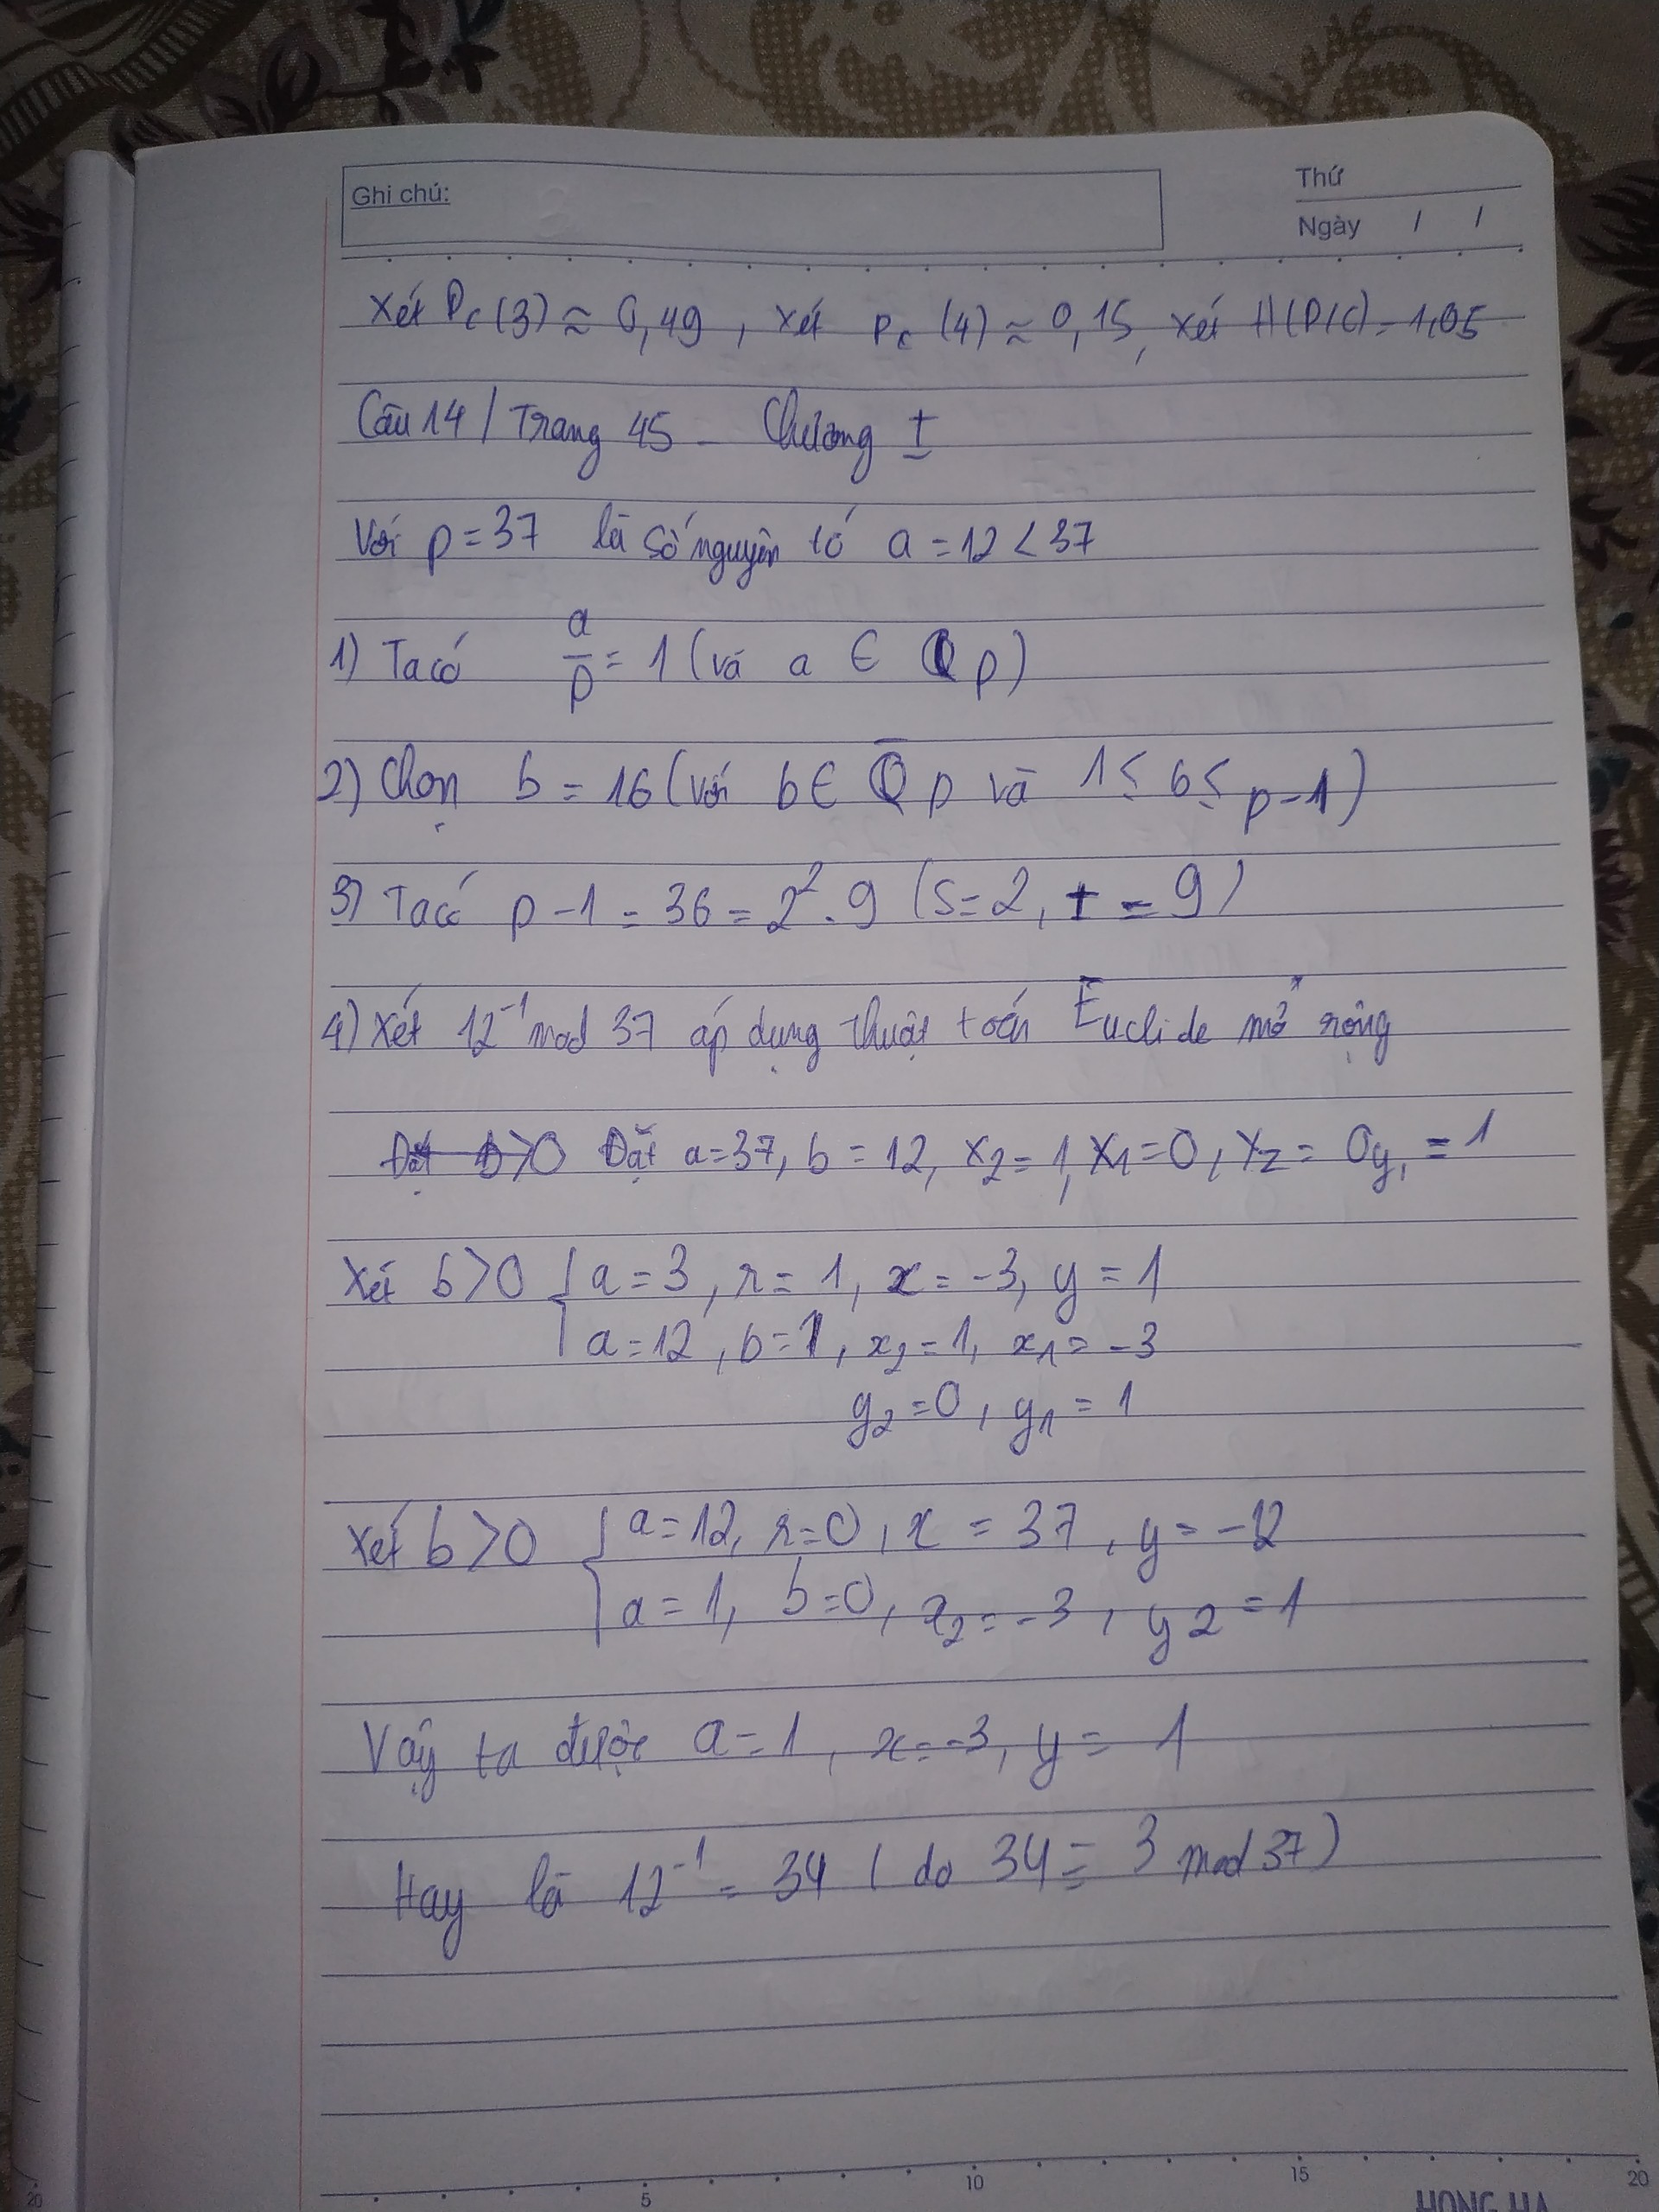 Ghi chú:
Thứ
Ngày / /
Xét Pc(3) ≈ 0,49, xét Pc(4) ≈ 0,15, xét H(P/C) = 1,05
Câu 14 / Trang 45 - Chương I
Với p = 37 là số nguyên tố a = 12 < 37
1) Ta có a/p = 1 (và a ∈ Q p)
2) Chọn b = 16 (với b ∈ Q̄ p và 1 ≤ b ≤ p-1)
3) Ta có p - 1 = 36 = 2² . 9 (S = 2, t = 9)
4) Xét 12⁻¹ mod 37 áp dụng thuật toán Euclide mở rộng
Đặt a = 37, b = 12, x₂ = 1, x₁ = 0, y₂ = 0 y₁ = 1
Xét b > 0 { a = 3, r = 1, x = -3, y = 1
a = 12, b = 1, x₂ = 1, x₁ = -3
y₂ = 0, y₁ = 1
Xét b > 0 { a = 12, r = 0, x = 37, y = -12
a = 1, b = 0, x₂ = -3, y2 = 1
Vậy ta được a = 1, x = -3, y = 1
Hay là 12⁻¹ = 34 ( do 34 ≡ 3 mod 37)
5 10 15 20
20
HONG HA